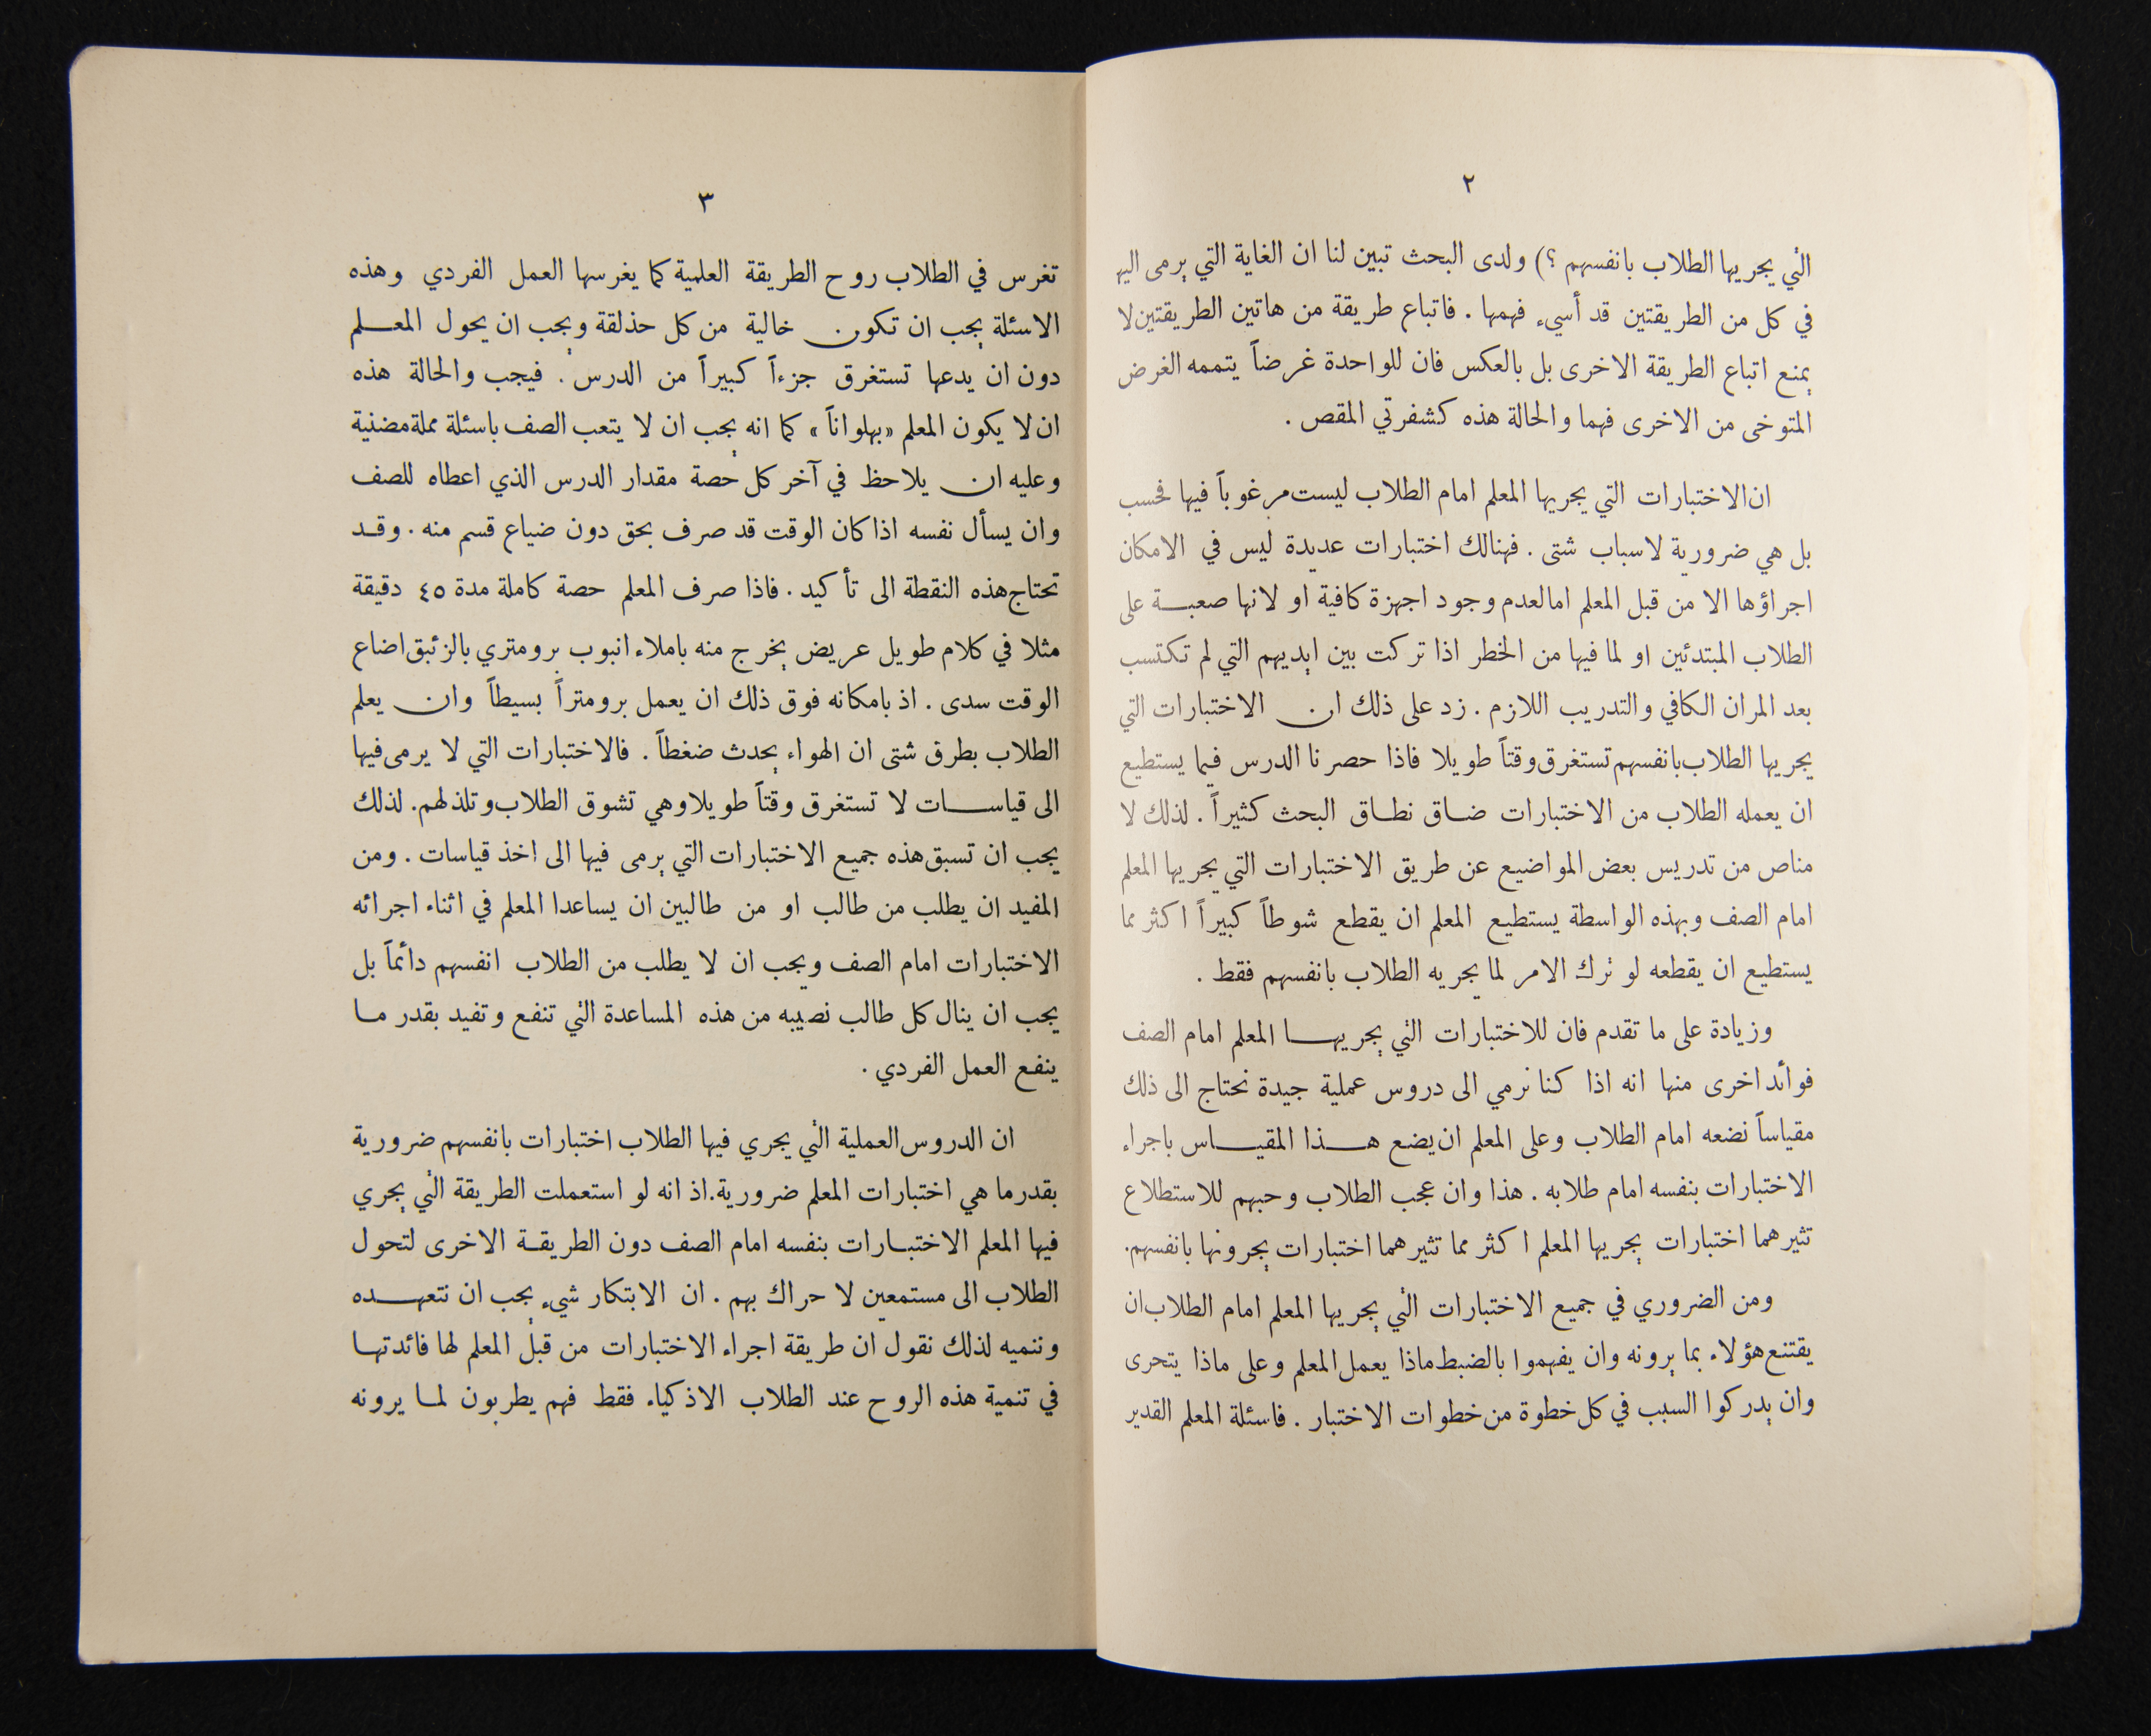 ٢
التي يجريها الطلاب بانفسهم ؟) ولدى البحث تبين لنا ان الغاية التي يرمى اليها
في كل من الطريقتين قد أسيء فهمها . فاتباع طريقة من هاتين الطريقتين لا
يمنع اتباع الطريقة الاخرى بل بالعكس فان للواحدة غرضاً يتممه الغرض
المتوخى من الاخرى فهما والحالة هذه كشفرتي المقص .
ان الاختبارات التي يجريها المعلم امام الطلاب ليست مرغوباً فيها فحسب
بل هي ضرورية لاسباب شتى . فهنالك اختبارات عديدة ليس في الامكان
اجراؤها الا من قبل المعلم اما لعدم وجود اجهزة كافية او لانها صعبة على
الطلاب المبتدئين او لما فيها من الخطر اذا تركت بين ايديهم التي لم تكتسب
بعد المران الكافي والتدريب اللازم . زد على ذلك ان الاختبارات التي
يجريها الطلاب بانفسهم تستغرق وقتاً طويلا فاذا حصرنا الدرس فيما يستطيع
ان يعمله الطلاب من الاختبارات ضاق نطاق البحث كثيراً . لذلك لا
مناص من تدريس بعض المواضيع عن طريق الاختبارات التي يجريها المعلم
امام الصف وبهذه الواسطة يستطيع المعلم ان يقطع شوطاً كبيراً اكثر مما
يستطيع ان يقطعه لو ترك الامر لما يجريه الطلاب بانفسهم فقط .
وزيادة على ما تقدم فان للاختبارات التي يجريها المعلم امام الصف
فوائد اخرى منها انه اذا كنا نرمي الى دروس عملية جيدة نحتاج الى ذلك
مقياساً نضعه امام الطلاب وعلى المعلم ان يضع هذا المقياس باجراء
الاختبارات بنفسه امام طلابه . هذا وان عجب الطلاب وحبهم للاستطلاع
تثيرهما اختبارات يجريها المعلم اكثر مما تثيرهما اختبارات يجرونها بانفسهم.
ومن الضروري في جميع الاختبارات التي يجريها المعلم امام الطلاب ان
يقتنع هؤلاء بما يرونه وان يفهموا بالضبط ماذا يعمل المعلم وعلى ماذا يتحرى
وان يدركوا السبب في كل خطوة من خطوات الاختبار . فاسئلة المعلم القدير
٣
تغرس في الطلاب روح الطريقة العلمية كما يغرسها العمل الفردي وهذه
الاسئلة يجب ان تكون خالية من كل حذلقة ويجب ان يحول المعلم
دون ان يدعها تستغرق جزءاً كبيراً من الدرس . فيجب والحالة هذه
ان لا يكون المعلم «بهلواناً» كما انه يجب ان لا يتعب الصف باسئلة مملة مضنية
وعليه ان يلاحظ في آخر كل حصة مقدار الدرس الذي اعطاه للصف
وان يسأل نفسه اذا كان الوقت قد صرف بحق دون ضياع قسم منه . وقد
تحتاج هذه النقطة الى تأكيد . فاذا صرف المعلم حصة كاملة مدة ٤٥ دقيقة
مثلا في كلام طويل عريض يخرج منه باملاء انبوب برومتري بالزئبق اضاع
الوقت سدى . اذ بامكانه فوق ذلك ان يعمل برومتراً بسيطاً وان يعلم
الطلاب بطرق شتى ان الهواء يحدث ضغطاً . فالاختبارات التي لا يرمى فيها
الى قياسات لا تستغرق وقتاً طويلا وهي تشوق الطلاب وتلذ لهم. لذلك
يجب ان تسبق هذه جميع الاختبارات التي يرمى فيها الى اخذ قياسات . ومن
المفيد ان يطلب من طالب او من طالبين ان يساعدا المعلم في اثناء اجرائه
الاختبارات امام الصف ويجب ان لا يطلب من الطلاب انفسهم دائماً بل
يجب ان ينال كل طالب نصيبه من هذه المساعدة التي تنفع وتفيد بقدر ما
ينفع العمل الفردي .
ان الدروس العملية التي يجري فيها الطلاب اختبارات بانفسهم ضرورية
بقدر ما هي اختبارات المعلم ضرورية. اذ انه لو استعملت الطريقة التي يجري
فيها المعلم الاختبارات بنفسه امام الصف دون الطريقة الاخرى لتحول
الطلاب الى مستمعين لا حراك بهم . ان الابتكار شيء يجب ان نتعهده
وننميه لذلك نقول ان طريقة اجراء الاختبارات من قبل المعلم لها فائدتها
في تنمية هذه الروح عند الطلاب الاذكياء فقط فهم يطربون لما يرونه